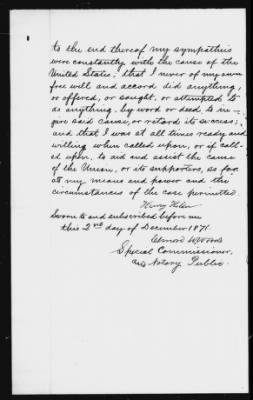 to the end thereof my sympathies
were constantly with the cause of the
United States; that I never of my own
free will and accord did anything,
or offered, or sought, or attempted to
do anything, by word or deed to in-
jure said cause, or retard its success;
and that I was at all times ready and
willing when called upon, or if call-
ed upon, to aid and assist the cause
of the Union, or its supporters, so far
as my means and power and the
circumstances of the case permitted
Henry
Sworn to and subscribed before me
this 2nd day of December 1871.
Special Commissioner,
and Notary Public.